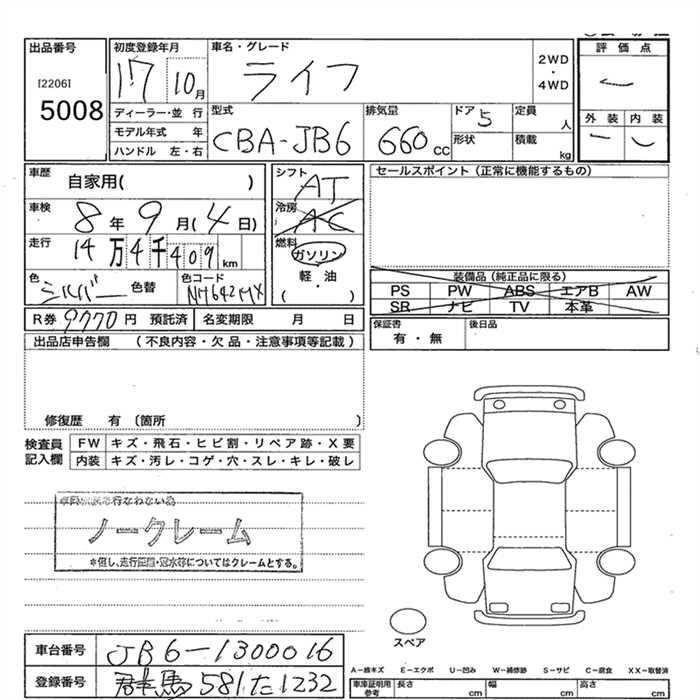 出品番号
[2206]
5008
初度登録年月
17 10月
車名・グレード
ライフ
2WD
・
4WD
評価点
外装 内装
ディーラー・並 行
モデル年式 年
ハンドル 左・右
型式
CBA-JB6
排気量
660 CC
ドア 5
形状
定員
人
積載
kg
車歴
自家用( )
車検
8年9月(4日)
走行
14万4千409km
色
シルバー 色替
色コード
NH642MX
シフト
AT
冷房
AC
燃料
ガソリン
軽・油
( )
セールスポイント(正常に機能するもの)
装備品(純正品に限る)
PS PW ABS エアB AW
SR ナビ TV 本革
R券 9770円 預託済 名変期限 月 日
保証書
有・無
後日品
出品店申告欄 (不良内容・欠品・注意事項等記載)
修復歴 有 (箇所 )
検査員
記入欄
FW キズ・飛石・ヒビ割・リペア跡・X要
内装 キズ・汚レ・コゲ・穴・スレ・キレ・破レ
ノークレーム
*但し、走行距離・冠水等についてはクレームとする。
スペア
車台番号 JB6-1300016
登録番号 群馬581た1232
A-線キズ E-エクボ U-凹み W-補修跡 S-サビ C-腐食 XX-取替済
車庫証明用
参考
長さ
cm
幅
cm
高さ
cm